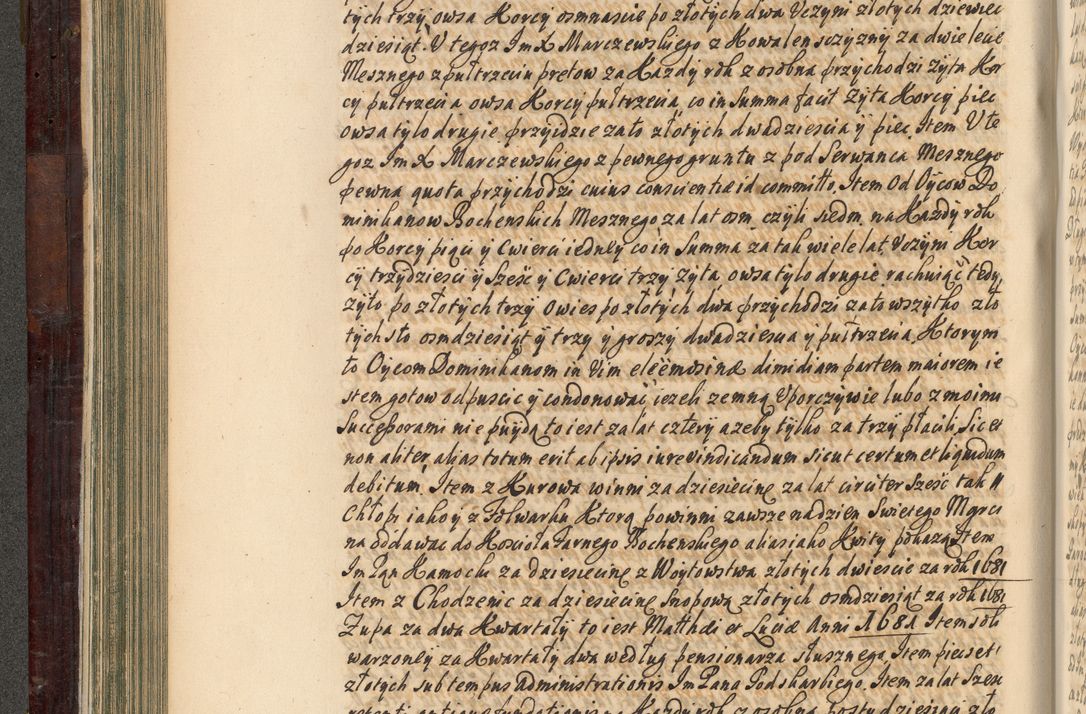 tych trzy owsa Korcy osmnascie po złotych dwa Uczyni złotych dziewiec
dziesiąt. U tegoz Im X Marczewskiego z Kowalensczyzny za dwie lecie
Mesznego z pułtrzeciu prętow za Kazdy rok z osobna przychodzi zyta Kor
cy pułtrzecia owsa Korcy pułtrzecia, co in Summa facit Zyta Korcy pięc
owsa tylo drugie przyidzie za to złotych dwadziescia y pięc. Item U te
goz Im X Marczewskiego z pewnego gruntu z pod Serwanca Mesznego
pewna quota przychodzi cuius conscientiæ id committo. Item Od Oycow Do
minikanow Bochenskich Mesznego za lat osm czyli siedm na Kazdy rok
po Korcy pięci y Cwierci iedney co in Summa za tak wiele lat Uczyni Kor
cy trzydziesci y Sześć y Cwierci trzy Zyta, owsa tylo drugie rachuiąc tedy
zyto po złotych trzy Owies po złotych dwa przychodzi za to wszytko zło
tych sto osmdziesiąt y trzy y groszy dwadziescia y pułtrzecia, Ktorym
to Oycom Dominikanom in Vim eleëmosinæ dimidiam partem maiorem ie
stem gotow odpuscic y condonować iezeli ze mną Uporczywie lubo z moimi
Successorami nie puydą to iest za lat cztery azeby tylko za trzy płacili, Sic et
non aliter, alias totum erit ab ipsis iure vindicandum sicut certum et liquidum
debitum. Item z Kurowa winni za dziesiecinę za lat circiter Sześć tak
Chłopi iako y z Folwarku Ktorą powinni zawsze na dzien Swietego Marci
na oddawac do Kosciola Farnego Bochenskiego alias iako Kwity pokazą Item
Im Pan Kamocki za dziesiecinę z Woytowstwa złotych dwiescie za rok 1681
Item z Chodzenic za dziesiecinę Snopową złotych osmdziesiąt za rok 1681
Zupa za dwa Kwartały to iest Matthæi et Luciæ Anni 1681 Item soli
warzoney za Kwartały dwa według pensionarza słusznego. Item piecset
złotych sub tempus administrationis Im Pana Podskarbiego. Item za lat Szesc